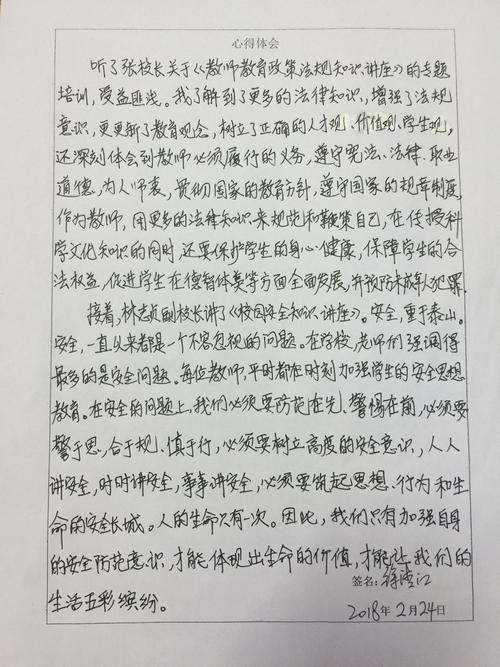 心得体会
听了张校长关于《教师教育政策法规知识讲座》的专题
培训,受益匪浅。我了解到了更多的法律知识,增强了法规
意识,更更新了教育观念,树立了正确的人才观、价值观、学生观,
还深刻体会到教师必须履行的义务,遵守宪法、法律、职业
道德,为人师表,贯彻国家的教育方针,遵守国家的规章制度,
作为教师,用更多的法律知识来规范和鞭策自己,在传授科
学文化知识的同时,还要保护学生的身心健康,保障学生的合
法权益,促进学生在德智体美等方面全面发展,并预防未成年人犯罪.
接着,林志贞副校长讲了《校园安全知识讲座》。安全,重于泰山。
安全,一直以来都是一个不容忽视的问题。在学校,老师们强调得
最多的是安全问题。每位教师,平时都在时刻加强学生的安全思想
教育。在安全的问题上,我们必须要防范在先、警惕在前,必须要
警于思,合于规、慎于行,必须要树立高度的安全意识,人人
讲安全,时时讲安全,事事讲安全,必须要筑起思想、行为和生
命的安全长城。人的生命只有一次。因此,我们只有加强自身
的安全防范意识,才能体现出生命的价值,才能让我们的
生活五彩缤纷。
签名:
2018年2月24日